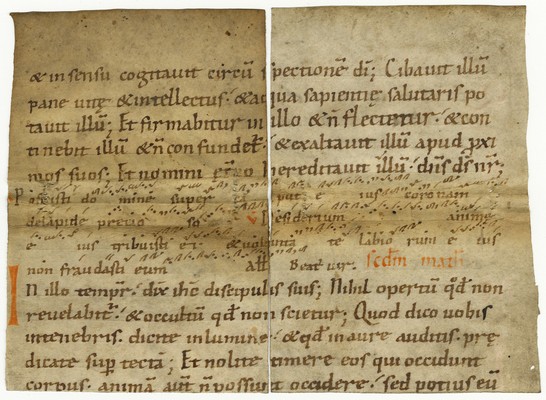 & in sensu cogitavit circū spectionē dī; Cibavit illū
pane vitę & intellectus· & aqua sapientię salutaris po
tavit illū; Et firmabitur in illo & n̄ flectetur· & con
tinebit illū & n̄ confundet· & exaltavit illū apud pxi
mos suos; Et nomini et̄no hereditavit illū· dn̄s ds̄ nr̄;
Posuisti do mine super ca put e ius coronam
de lapide precio so V Desiderium anime
e ius tribuisti ei & volunta te labio rum e ius
non fraudasti eum All Beat' vir· scd̄m math
In illo tempr· dix ih̄c discipulis suis; Nihil opertū qd̄ non
revelabit̄· & occultū qd̄ non scietur; Quod dico vobis
in tenebris· dicite in lumine· & qd̄ in aure auditis· prę
dicate sup tecta; Et nolite timere eos qui occidunt
corpus· animā aut̄ n̄ possunt occidere· sed potius eū